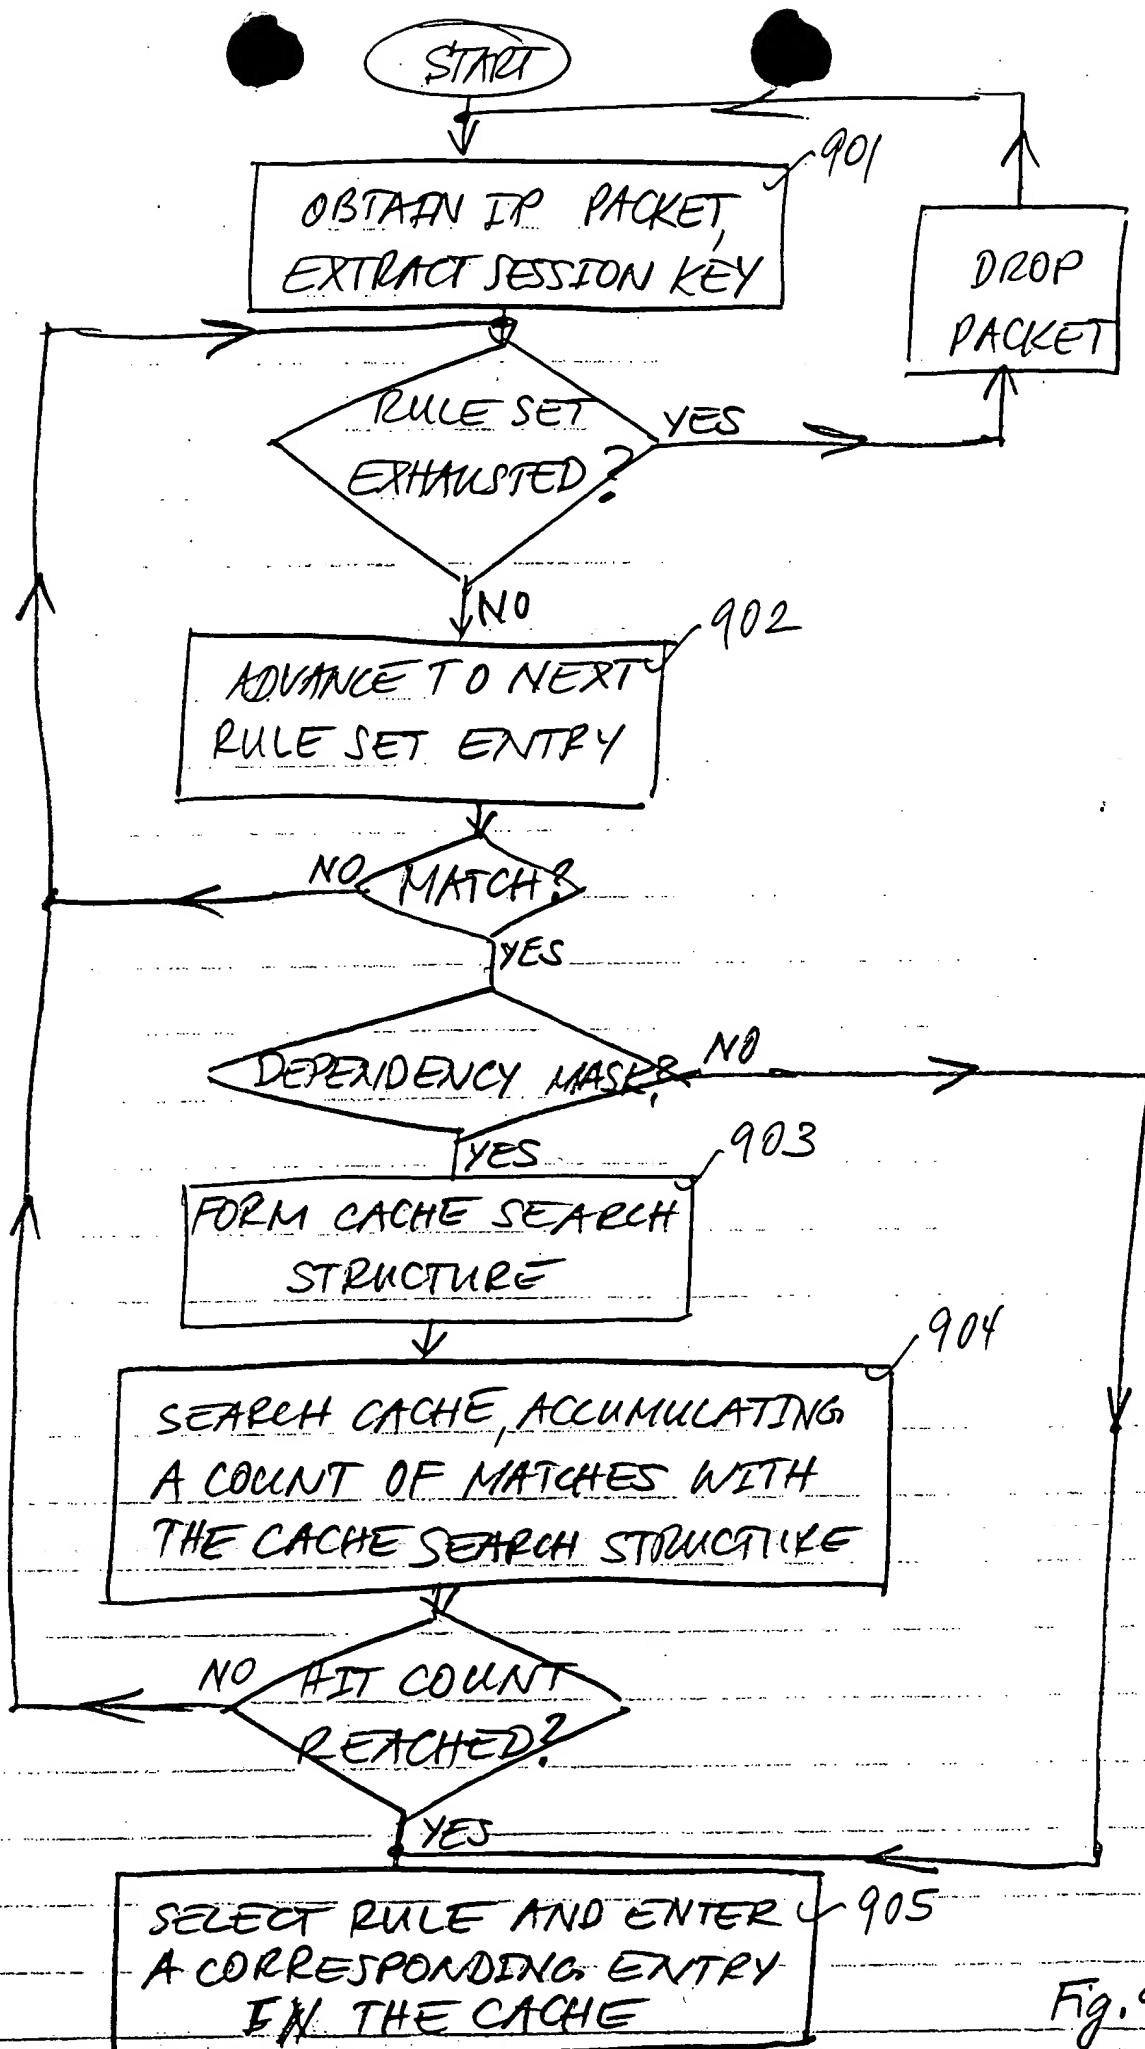 START
901
OBTAIN IP PACKET,
EXTRACT SESSION KEY
DROP
PACKET
RULE SET
EXHAUSTED?
YES
NO
902
ADVANCE TO NEXT
RULE SET ENTRY
NO
MATCH?
YES
DEPENDENCY MASK?
NO
YES
903
FORM CACHE SEARCH
STRUCTURE
904
SEARCH CACHE, ACCUMULATING
A COUNT OF MATCHES WITH
THE CACHE SEARCH STRUCTURE
NO
HIT COUNT
REACHED?
YES
905
SELECT RULE AND ENTER
A CORRESPONDING ENTRY
IN THE CACHE
Fig.